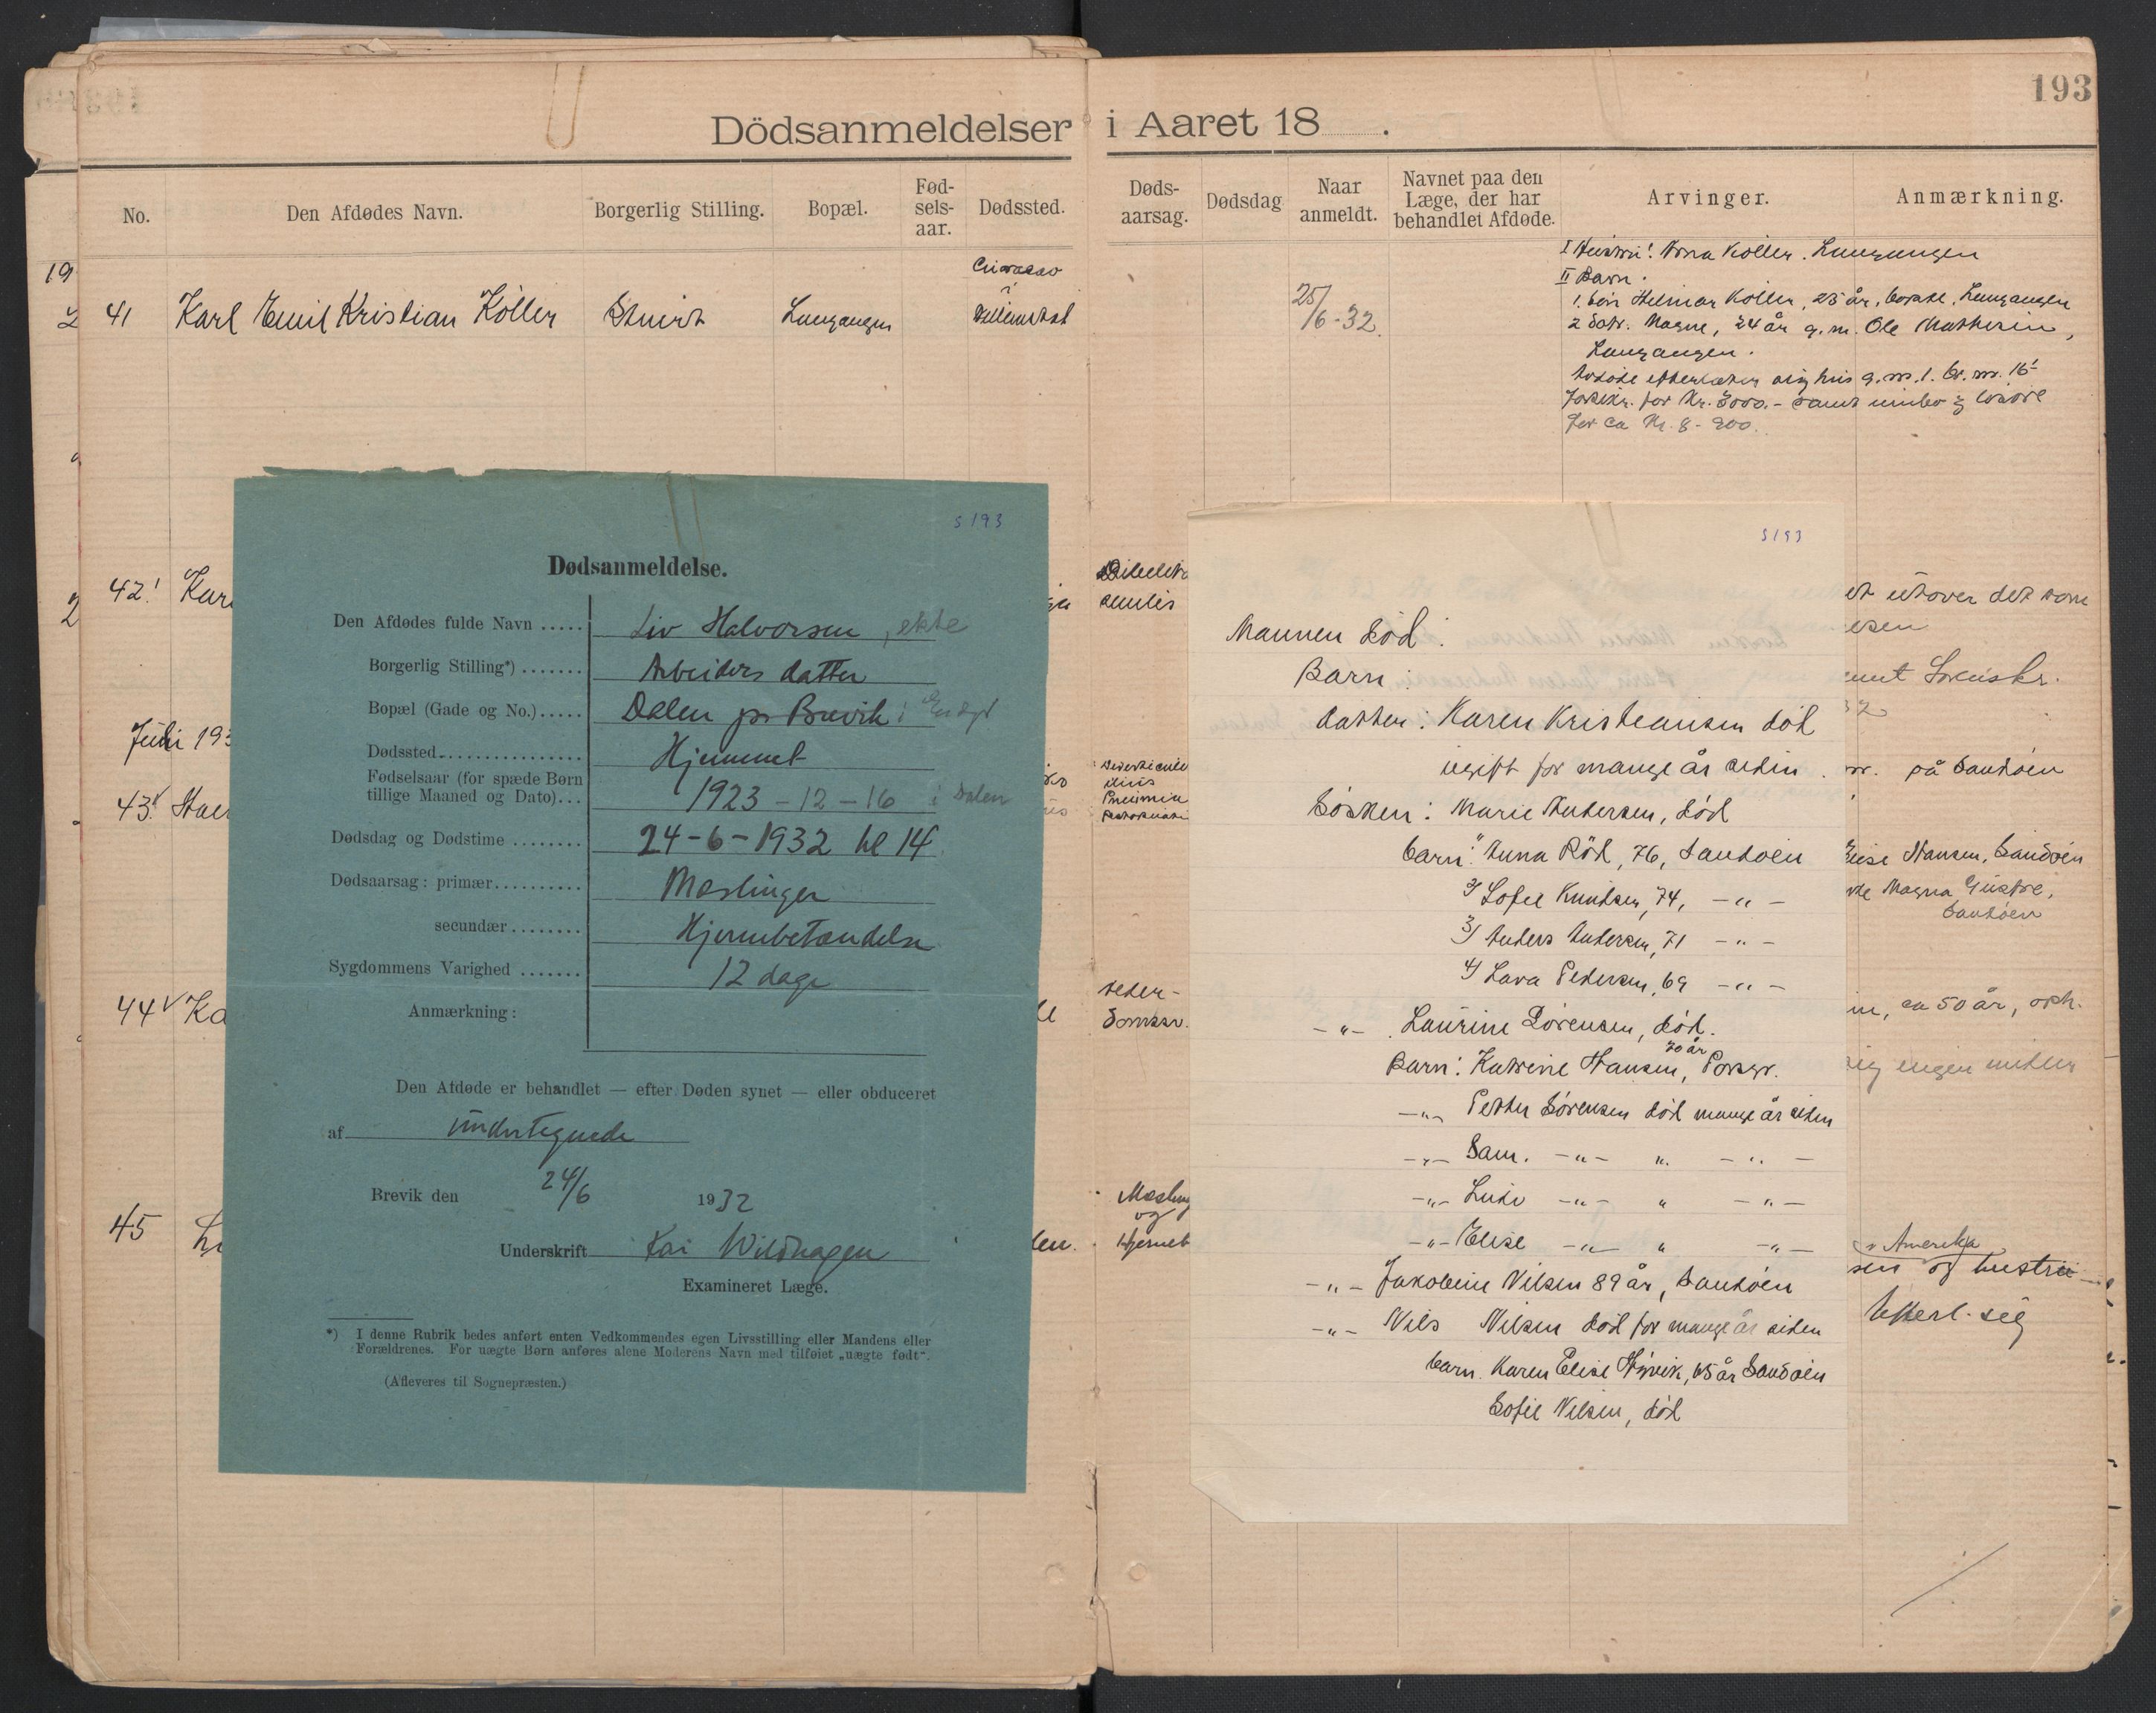 193
Dödsanmeldelser i Aaret 18 .
No. Den Afdødes Navn. Borgerlig Stilling. Bopæl. Fød-sels-aar. Dødssted. Døds-aarsag. Dødsdag Naar anmeldt. Navnet paa den Læge, der har behandlet Afdøde. Arvinger. Anmærkning.
19
41 Karl Emil Kristian Köller Stuert Langangen 25/6-32.
II Barn.
1. Sön Hilmar Köller, 25 år, Langangen
2 Dotr. 24 år g.m. Ole
Langangen.
for Kr. 3000.- samt
for ca Kr. 8-900.
42
et utover det som
Juli 193
på Sandöen
43
Elise Hansen, Sandöen
Magna
Sandöen
44 Ka
ca 50 år,
sig ingen midler
45
Mesling
og
Hjernebet
Amerika
og hustru
Efterl. sig
s 193
Dødsanmeldelse.
Den Afdødes fulde Navn ..... Liv Halvorsen, ekte
Borgerlig Stilling*) ....... Arbeiders datter
Bopæl (Gade og No.)..... Dalen pr Brevik i Eidgr
Dødssted................ Hjemmet
Fødselsaar (for spæde Børn
tillige Maaned og Dato)... 1923-12-16 i Dalen
Dødsdag og Dødstime ........ 24-6-1932 kl 14
Dødsaarsag: primær.......... Meslinger
secundær ........ Hjernebetændelse
Sygdommens Varighed ....... 12 dage
Anmærkning:
Den Afdøde er behandlet — efter Døden synet — eller obduceret
af undertegnede
Brevik den 24/6 1932
Underskrift Kai Wildhagen
Examineret Læge.
*) I denne Rubrik bedes anført enten Vedkommendes egen Livsstilling eller Mandens eller
Forældrenes. For uægte Børn anføres alene Moderens Navn med tilføiet „uægte født“.
(Afleveres til Sognepræsten.)
S 193
Mannen död.
Barn:
datter: Karen Kristiansen död
ugift for mange år siden.
Sösken: Marie Andersen, död
barn: Anna Röd, 76, Sandöen
2/ Sofie Knudsen, 74, -"-
3/ Anders Andersen, 71 -"-
4/ Lava Pedersen, 69 -"-
-"- Laurine Sörensen, död.
Barn: Katrine Hansen, 70 år Porsgr.
-"- Petter Sörensen död mange år siden
-"- Sam. -"- " -"-
-"- Ludv -"- " -"-
-"- Elise -"- " -"-
-"- Jakobine Nilsen 89 år, Sandöen
-"- Nils Nilsen död for mange år siden
barn. Karen Elise 65 år Sandöen
Sofie Nilsen, död